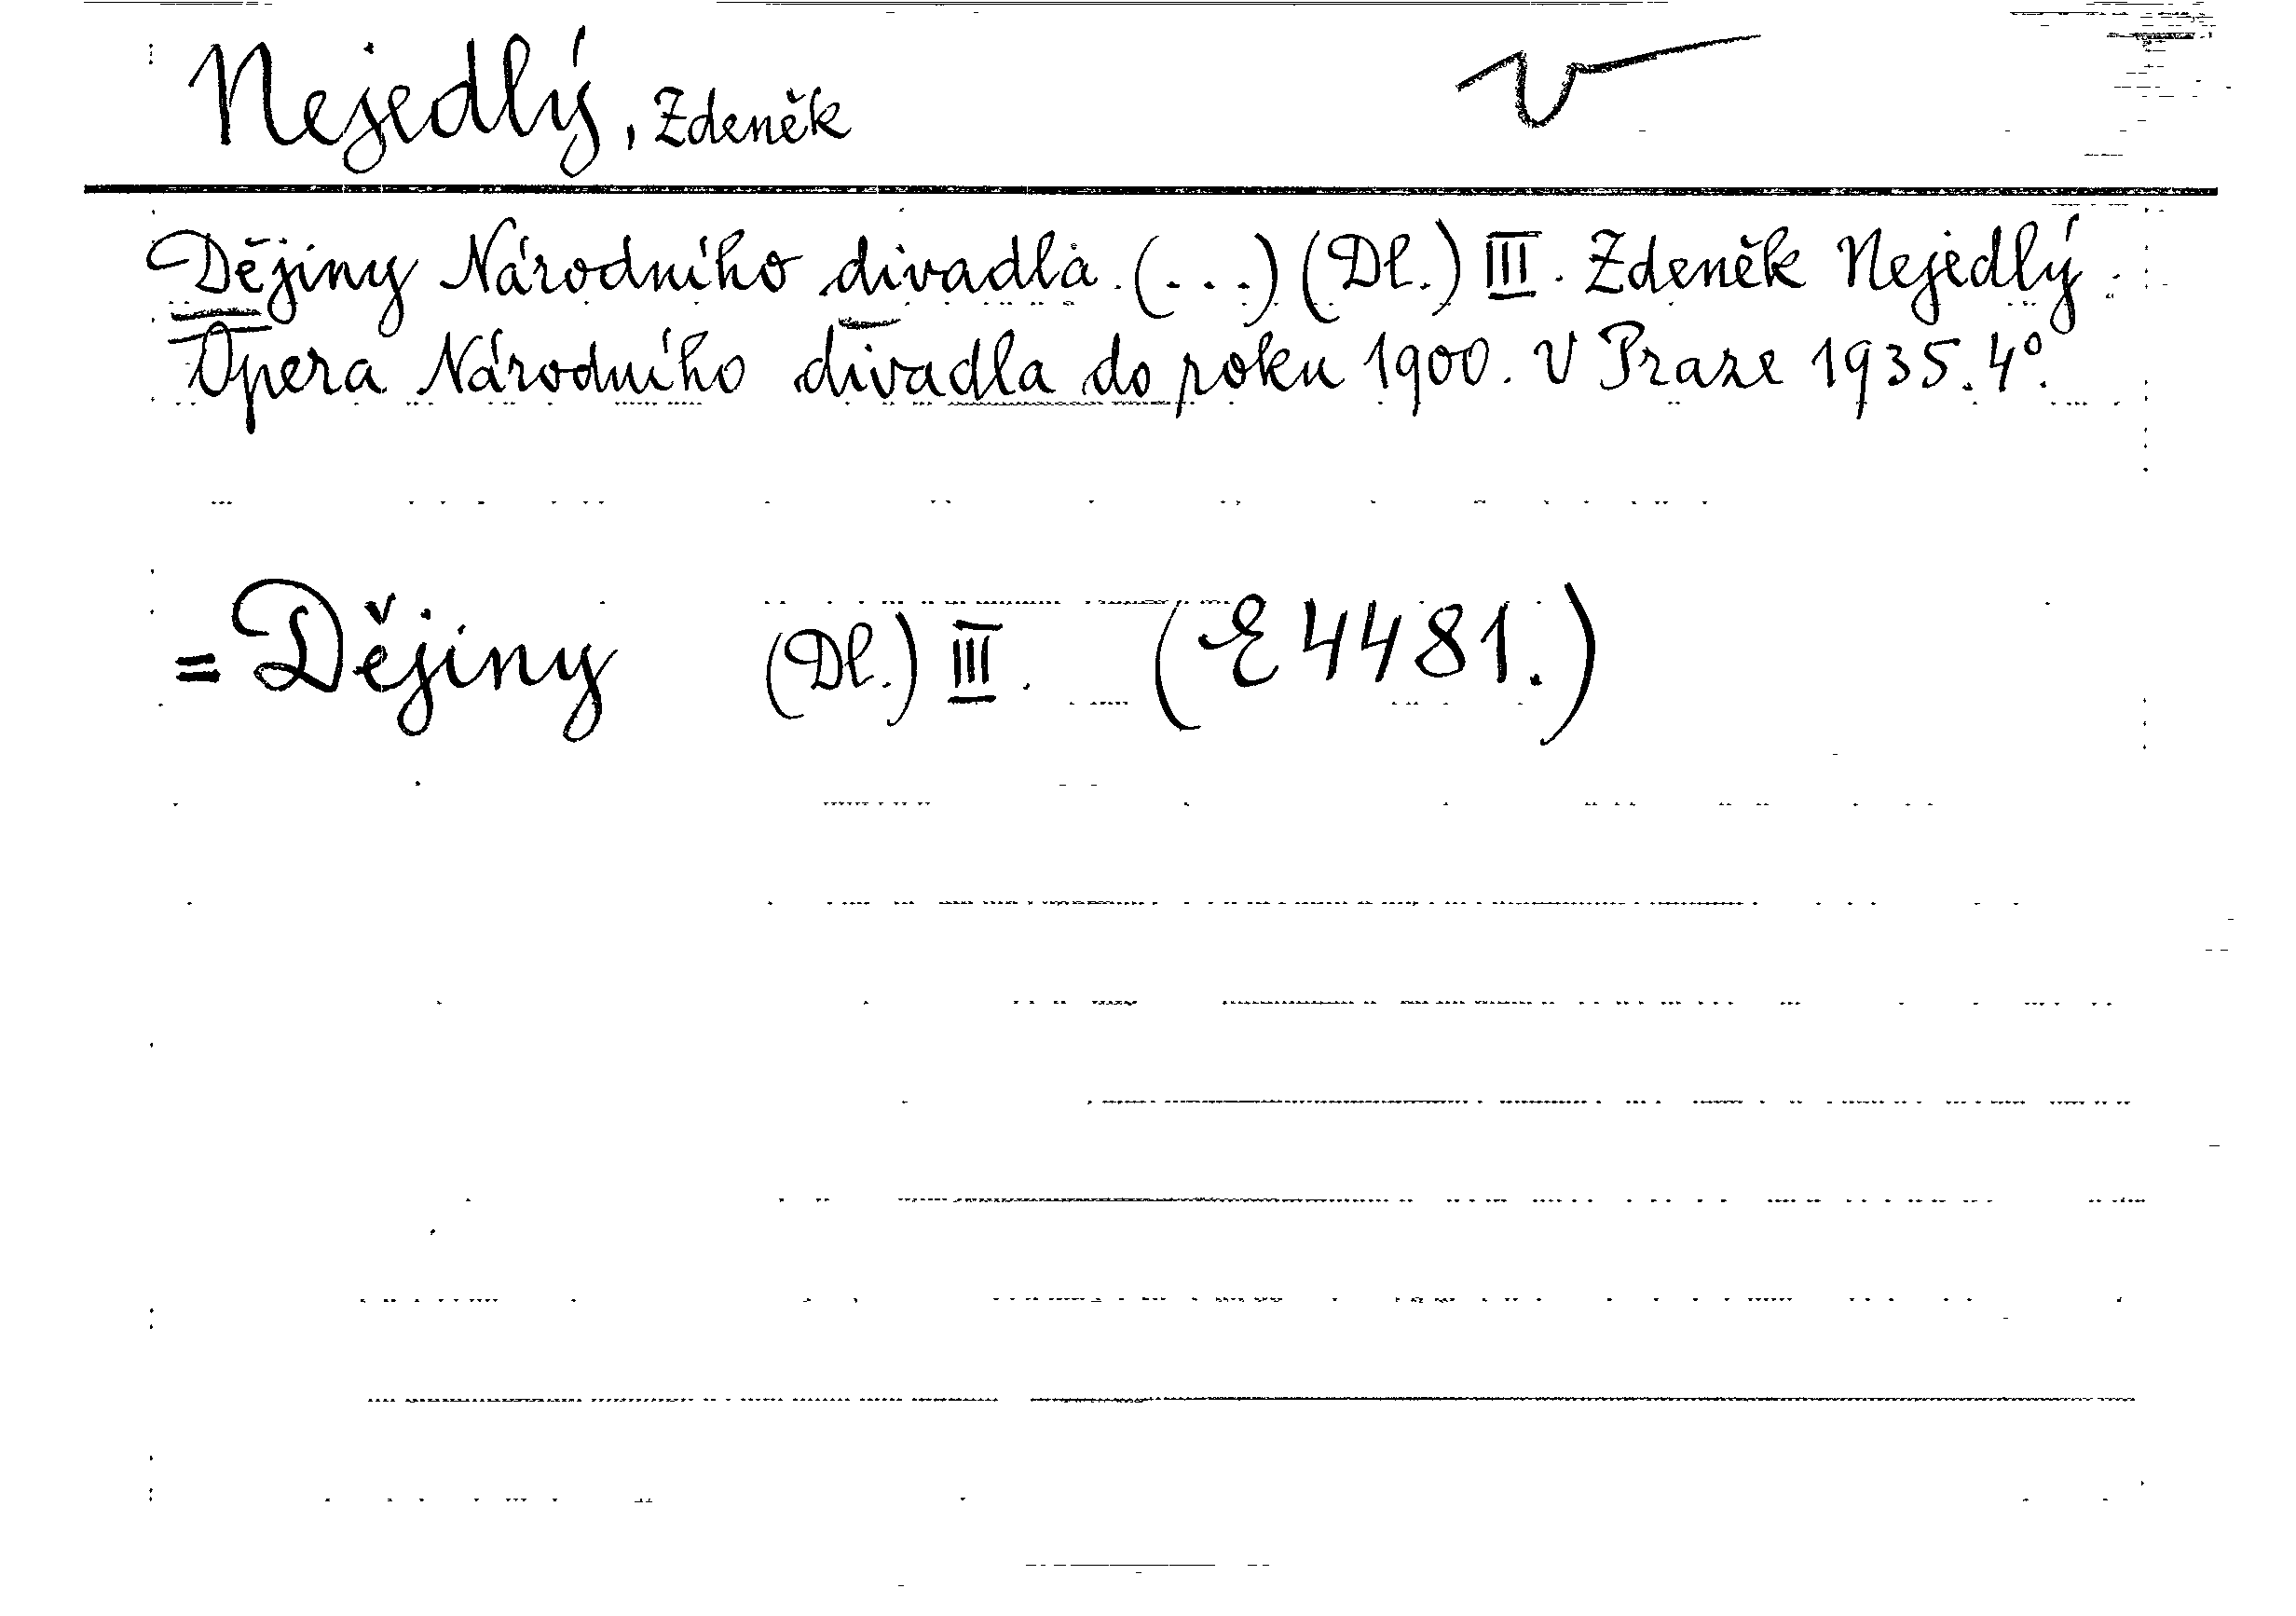 Nejedlý, Zdeněk
Dějiny Národního divadla. (...) (Dl.) III. Zdeněk Nejedlý
Opera Národního divadla do roku 1900. V Praze 1935. 4°.
= Dějiny (Dl.) III. (E 4481.)